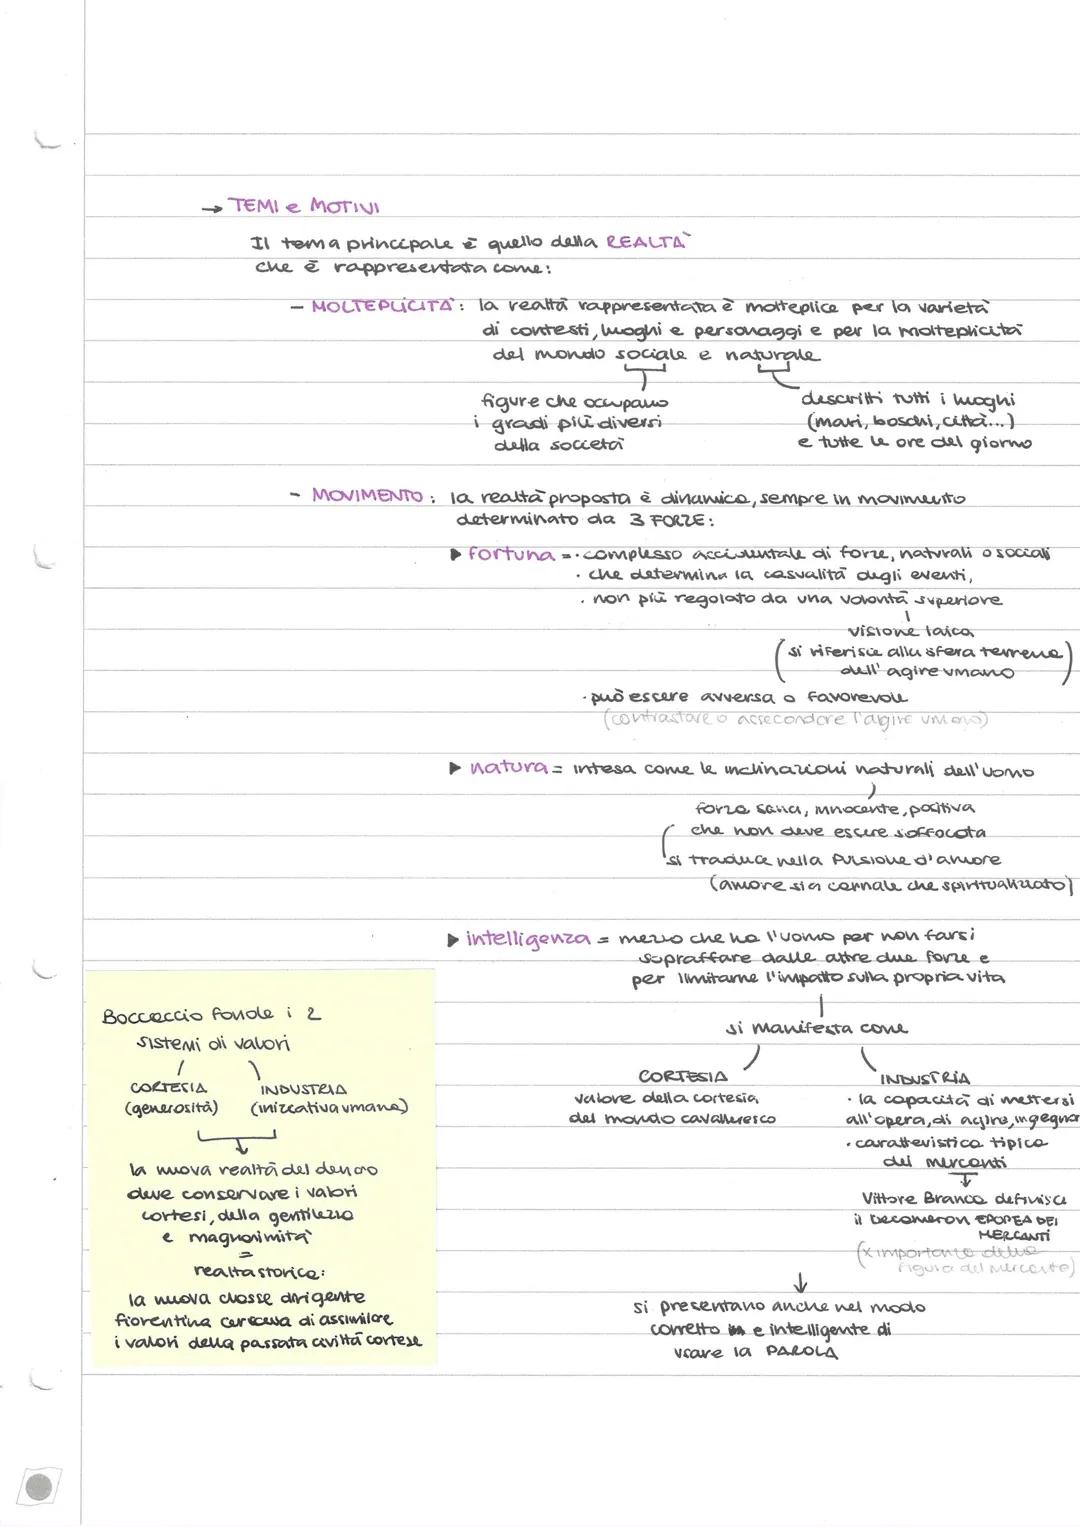 → TEMI e MOTIVI
Il tema principale è quello della REALTÀ
che è rappresentata come:
- MOLTEPLICITÀ: la realtà rappresentata è molteplice per la varietà
di contesti, luoghi e personaggi e per la molteplicità
del mondo sociale e naturale
figure che occupano
i gradi più diversi
della società
descritti tutti i luoghi
(mari, boschi, città...)
e tutte le ore del giorno
- MOVIMENTO: la realtà proposta è dinamica, sempre in movimento
determinato da 3 FORZE:
▶ fortuna = · complesso accidentale di forze, naturali o sociali
· che determina la casualità degli eventi,
· non più regolato da una volontà superiore
visione laica
(si riferisce alla sfera terrena)
dell'agire umano
· può essere avversa o favorevole
(contrastare o assecondare l'agire umano)
▶ natura = intesa come le inclinazioni naturali dell'uomo
forza sana, innocente, positiva
che non deve essere soffocata
si traduce nella pulsione d'amore
(amore sia carnale che spiritualizzato)
▶ intelligenza = mezzo che ha l'uomo per non farsi
sopraffare dalle altre due forze e
per limitarne l'impatto sulla propria vita
si manifesta come
CORTESIA
valore della cortesia
del mondo cavalleresco
INDUSTRIA
· la capacità di mettersi
all'opera, di agire, ingegnar
· caratteristica tipica
dei mercanti
Vittore Branca definisce
il Decameron EPOPEA DEI
MERCANTI
(x importanza della
figura del mercante)
si presentano anche nel modo
corretto e intelligente di
usare la PAROLA
Boccaccio fonde i 2
sistemi di valori
CORTESIA
(generosità)
INDUSTRIA
(iniziativa umana)
la nuova realtà del denaro
deve conservare i valori
cortesi, della gentilezza
e magnanimità
=
realtà storica:
la nuova classe dirigente
fiorentina cercava di assimilare
i valori della passata civiltà cortese